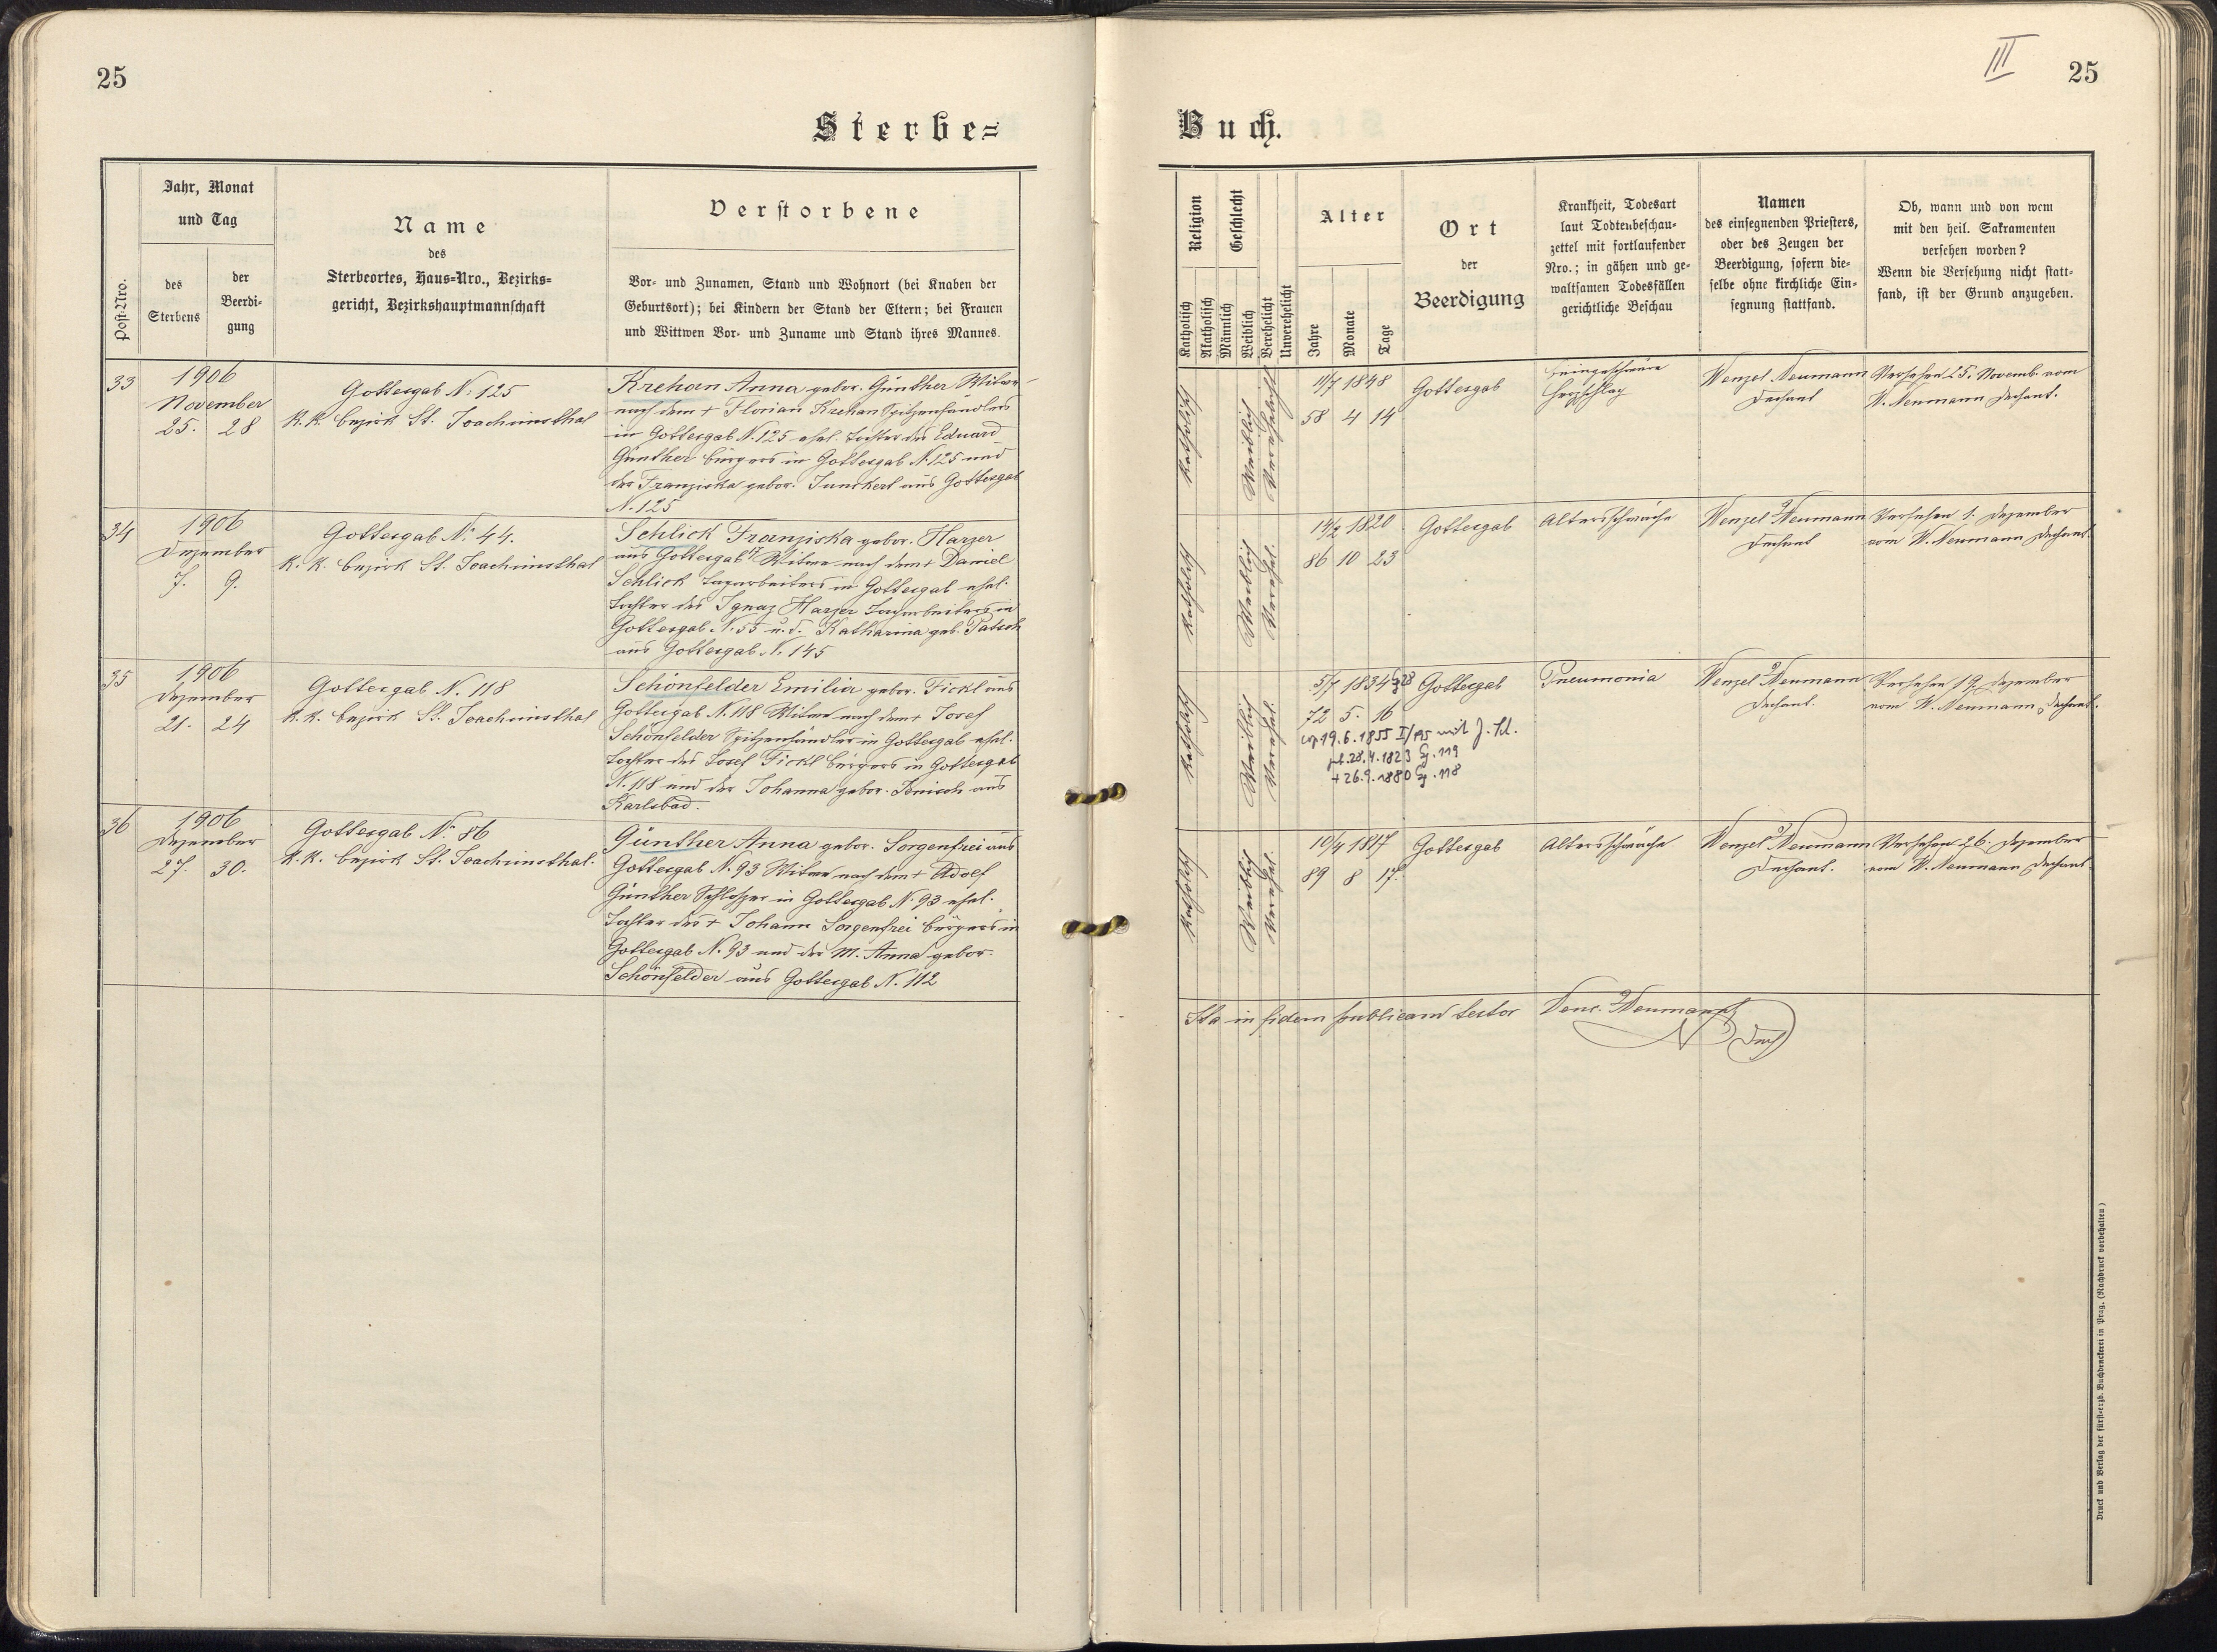 25
Sterbe=
Jahr, Monat
und Tag
Post-Nro.
des
Sterbens
der
Beerdi-
gung
Name
des
Sterbeortes, Haus=Nro., Bezirks=
gericht, Bezirkshauptmannschaft
Verstorbene
Vor- und Zunamen, Stand und Wohnort (bei Knaben der
Geburtsort); bei Kindern der Stand der Eltern; bei Frauen
und Wittwen Vor- und Zuname und Stand ihres Mannes.
33
1906
November
25. 28
Gottesgab N. 125
K. K. Bezirk St. Joachimsthal
Krehan Anna gebor. Günther Witwe
nach dem + Florian Krehan Spitzenhändlers
in Gottesgab N. 125 ehel. Tochter des Eduard
Günther Bürgers in Gottesgab N. 125 und
der Franziska gebor. Junckerl aus Gottesgab
N. 125
34
1906
Dezember
7. 9.
Gottesgab N. 44.
K. K. Bezirk St. Joachimsthal
Schlick Franziska gebor. Harzer
aus Gottesgab Witwe nach dem + Daniel
Schlick Tagarbeiters in Gottesgab ehel.
Tochter des Ignaz Harzer Tagarbeiters in
Gottesgab N. 55 u. d. Katharina geb. Patsch
aus Gottesgab N. 145
35
1906
Dezember
21. 24
Gottesgab N. 118
K. K. Bezirk St. Joachimsthal
Schönfelder Emilia gebor. Fickl aus
Gottesgab N. 118 Witwe nach dem + Josef
Schönfelder Spitzenhändler in Gottesgab ehel.
Tochter des Josef Fickl Bürgers in Gottesgab
N. 118 und der Johanna gebor. Jenisch aus
Karlsbad.
36
1906
Dezember
27. 30.
Gottesgab N. 86
K. K. Bezirk St. Joachimsthal.
Günther Anna gebor. Sorgenfrei aus
Gottesgab N. 93 Witwe nach dem + Adolf
Günther Schlosser in Gottesgab N. 93 ehel.
Tochter des + Johann Sorgenfrei Bürgers in
Gottesgab N. 93 und der M. Anna gebor.
Schönfelder aus Gottesgab N. 112
III
25
Buch.
Religion
Katholisch
Akatholisch
Geschlecht
Männlich
Weiblich
Verehelicht
Unverehelicht
Alter
Jahre
Monate
Tage
Ort
der
Beerdigung
Krankheit, Todesart
laut Todtenbeschau-
zettel mit fortlaufender
Nro.; in gähen und ge-
waltsamen Todesfällen
gerichtliche Beschau
Namen
des einsegnenden Priesters,
oder des Zeugen der
Beerdigung, sofern die-
selbe ohne kirchliche Ein-
segnung stattfand.
Ob, wann und von wem
mit den heil. Sakramenten
versehen worden?
Wenn die Versehung nicht statt-
fand, ist der Grund anzugeben.
Katholisch
Weiblich
Verehelicht
11/7 1848
58 4 14
Gottesgab
Herzschlag
Wenzel Neumann
Dechant
Versehen 25. Novemb. vom
W. Neumann Dechant.
Katholisch
Weiblich
Verehel.
14/2 1820
86 10 23
Gottesgab
Altersschwäche
Wenzel Neumann
Dechant
Versehen 1. Dezember
vom W. Neumann Dechant.
Katholisch
Weiblich
Verehel.
5/7 1834
72 5. 16
Gottesgab
Pneumonia
Wenzel Neumann
Dechant.
Versehen 19. Dezember
vom W. Neumann Dechant.
cop. 19.6.1855 I/95 mit J. Sch.
geb. 28.4.1823 G. 119
+ 26.9.1880 G. 118
Katholisch
Weiblich
Verehel.
10/4 1817
89 8 17.
Gottesgab
Altersschwäche
Wenzel Neumann
Dechant.
Versehen 26. Dezember
vom W. Neumann Dechant.
Ita in fidem publicam testor Venc. Neumann
Dech
Druck und Verlag der fürst-erzb. Buchdruckerei in Prag. (Nachdruck vorbehalten)